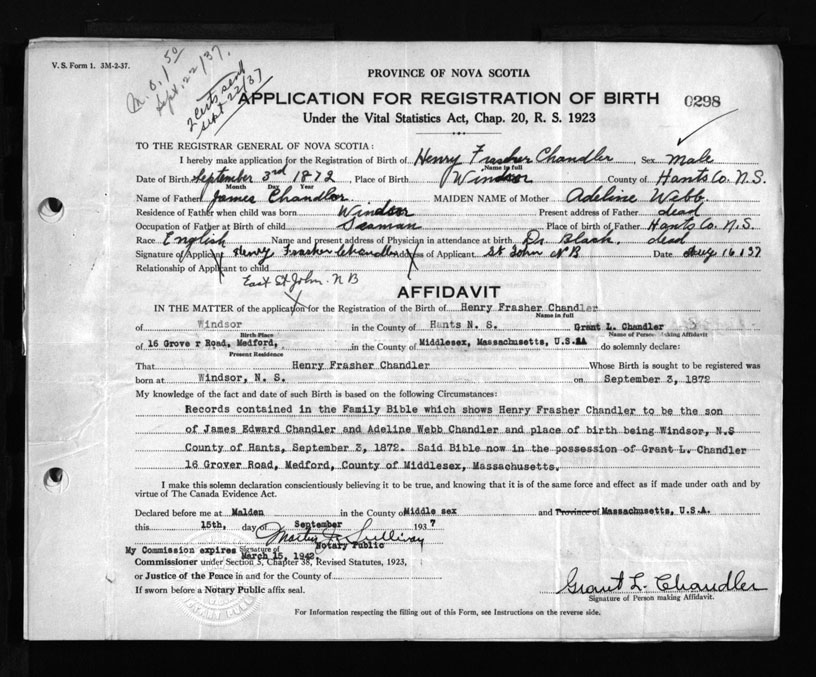 V. S. Form 1. 3M-2-37.
M.O. 1 50
Sept. 22/37.
2 Certs. send
Sept 22/37
PROVINCE OF NOVA SCOTIA
APPLICATION FOR REGISTRATION OF BIRTH 0298
Under the Vital Statistics Act, Chap. 20, R. S. 1923
TO THE REGISTRAR GENERAL OF NOVA SCOTIA:
I hereby make application for the Registration of Birth of Henry Frasher Chandler Sex Male
Name in full
Date of Birth September 3rd 1872, Place of Birth Windsor County of Hants Co. N.S.
Month Day Year
Name of Father James Chandler MAIDEN NAME of Mother Adeline Webb
Residence of Father when child was born Windsor Present address of Father dead
Occupation of Father at Birth of child Seaman Place of birth of Father Hants Co. N.S.
Race English Name and present address of Physician in attendance at birth Dr. Black. dead
Signature of Applicant Henry Frasher Chandler Address of Applicant St John NB Date Aug 16 137
Relationship of Applicant to child
East St John. N B
AFFIDAVIT
IN THE MATTER of the application for the Registration of the Birth of Henry Frasher Chandler
Name in full
of Windsor in the County of Hants N. S. Grant L. Chandler
Birth Place Name of Person Making Affidavit
of 16 Grove r Road, Medford, in the County of Middlesex, Massachusetts, U.S.A do solemnly declare:
Present Residence
That Henry Frasher Chandler Whose Birth is sought to be registered was
born at Windsor, N. S. on September 3, 1872
My knowledge of the fact and date of such Birth is based on the following Circumstances:
Records contained in the Family Bible which shows Henry Frasher Chandler to be the son
of James Edward Chandler and Adeline Webb Chandler and place of birth being Windsor, N.S
County of Hants, September 3, 1872. Said Bible now in the possession of Grant L. Chandler
16 Grover Road, Medford, County of Middlesex, Massachusetts.
I make this solemn declaration conscientiously believing it to be true, and knowing that it is of the same force and effect as if made under oath and by
virtue of The Canada Evidence Act.
Declared before me at Malden in the County of Middle sex and Province of Massachusetts, U.S.A.
this 15th, day of September 1937
Martin J. Sullivan
My Commission expires Signature of Notary Public
March 15, 1942.
Commissioner under Section 5, Chapter 38, Revised Statutes, 1923,
or Justice of the Peace in and for the County of
If sworn before a Notary Public affix seal.
Grant L. Chandler
Signature of Person making Affidavit.
For Information respecting the filling out of this Form, see Instructions on the reverse side.